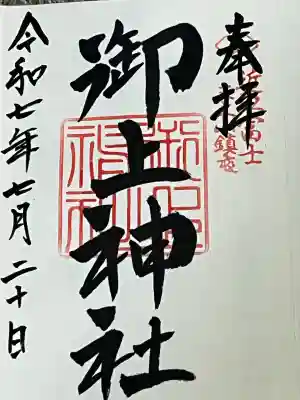 奉拝
近江富士
鎮座
御上神社
令和七年七月二十日